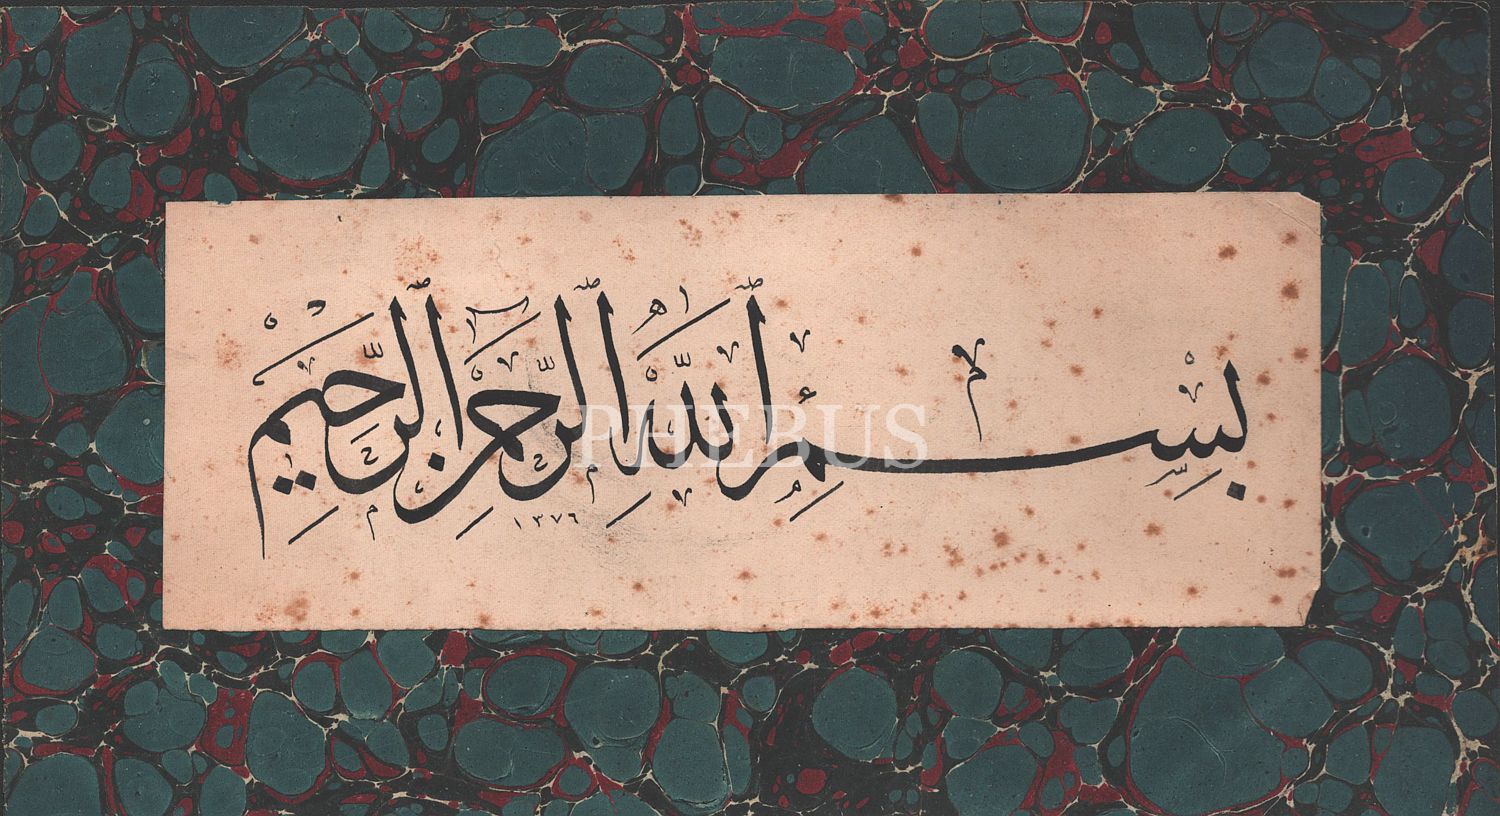 بِسْمِ اللّٰهِ الرَّحْمٰنِ الرَّحِيْمِ
١٣٧٦
PHEBUS